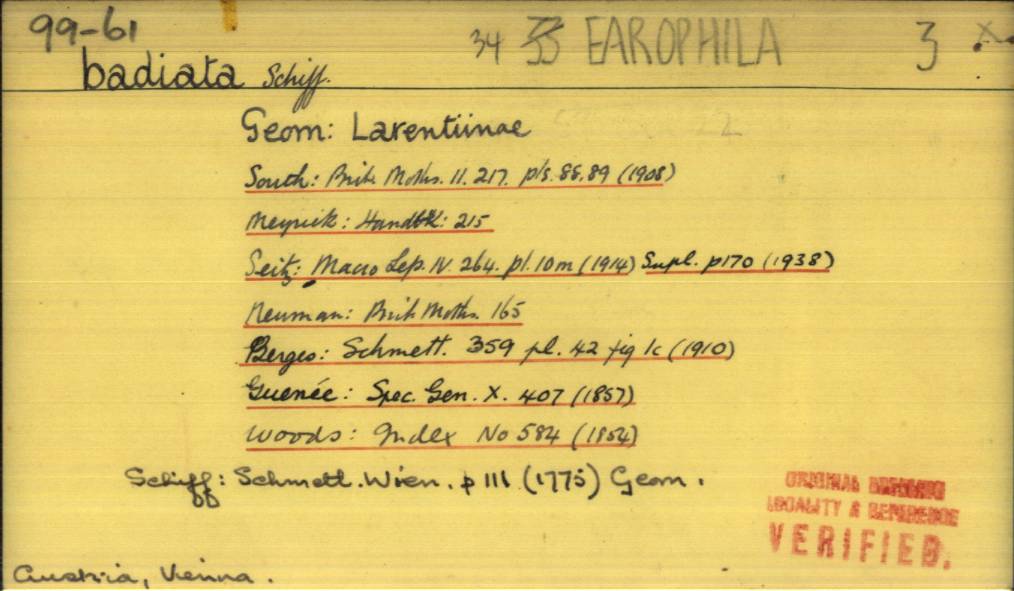 99-61 34 35 EAROPHILA 3 x
badiata Schiff.
Geom: Larentiinae
South: Brit. Moths. II. 217. pls. 88,89 (1908)
Meyrick: Handbk: 215
Seitz: Macro Lep. IV. 264. pl. 10m (1914) Supl. p170 (1938)
Neuman: Brit Moths. 165
Berges: Schmett. 359 pl. 42 fig 1c (1910)
Guenée: Spec. Gen. X. 407 (1857)
Woods: Index No 584 (1854)
Schiff: Schmett. Wien. p 111 (1775) Geom.
ORIGINAL
LOCALITY & REFERENCE
VERIFIED.
Austria, Vienna.